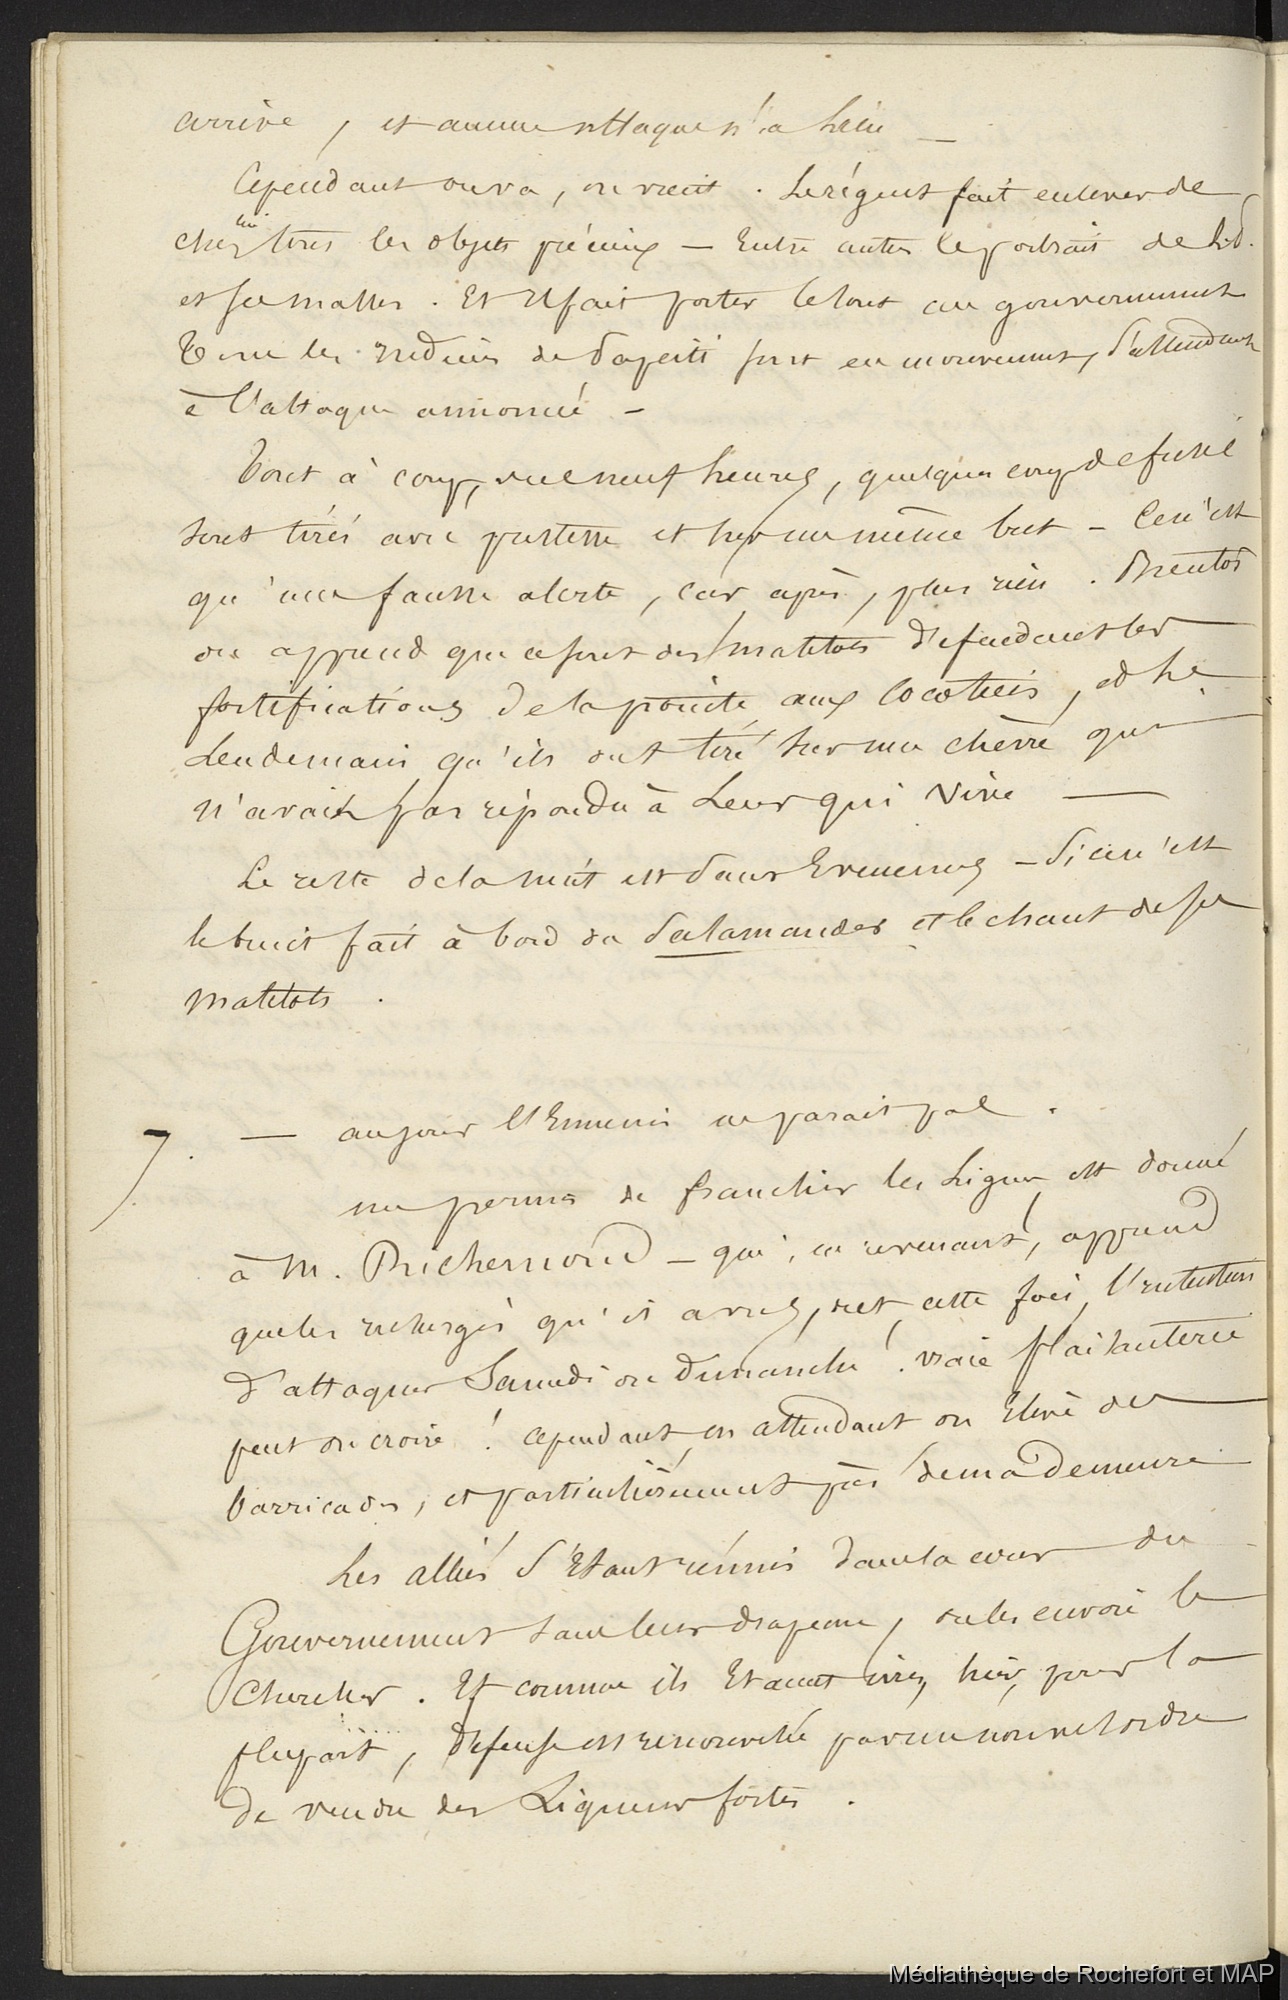 arrive, et aucune attaque n'a lieu —
Cependant on va, on vient. Le régent fait enlever de
chez lui tous les objets précieux — Entre autres le portrait de L.d.
et ses malles. Et il fait porter le tout au gouvernement
Tous les indiens de Papeiti sont en mouvement, s'attendant
à l'attaque annoncée —
Tout à coup, vers neuf heures, quelques coups de fusil
sont tirés avec justesse et sur un même but — Ce n'est
qu'une fausse alerte, car après, plus rien. Bientôt
on apprend que ce sont des matelots défendant les
fortifications de la pointe aux cocotiers, et le
Lendemain qu'ils ont tiré sur une chèvre qui
n'avait pas répondu à Leur qui vive —
Le reste de la nuit est sans Evenemens — Si ce n'est
le bruit fait à bord du Salamander et le chant de ses
matelots.
7. — au jour l'Ennemi ne parait pas.
un permis de franchir les Lignes est donné
à M. Richemond — qui, en revenant, apprend
que les insurgés qu'il a vus, ont, cette fois, l'intention
d'attaquer Samedi ou Dimanche! vraie plaisanterie
peut on croire! cependant en attendant on Elève des
barricades, et particulièrement près de ma Demeure
Les alliés s'Etant réunis dans la cour du
Gouvernement sans leur drapeau, on les envoie le
Chercher. Et comme ils Etaient ivres, hier, pour la
plupart, défense est renouvelée par un nouvel ordre
de vendre des Liqueurs fortes.
Médiathèque de Rochefort et MAP